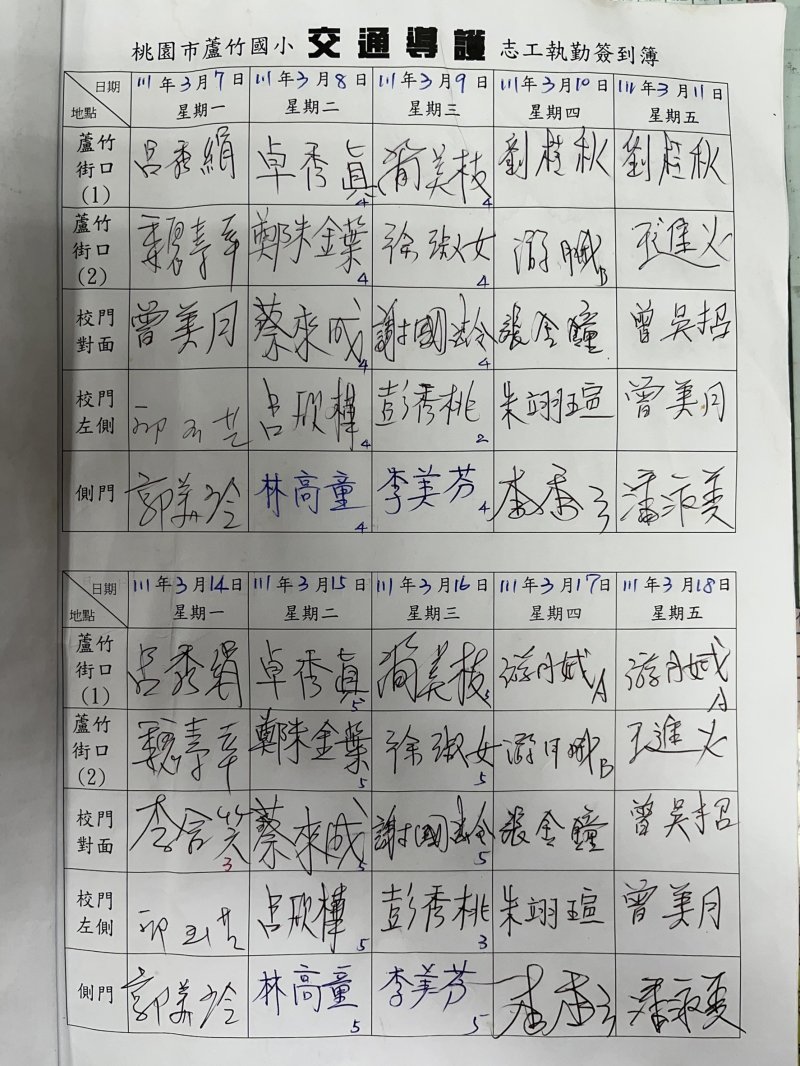 桃園市蘆竹國小 交通導護 志工執勤簽到簿
日期 111年3月7日 111年3月8日 111年3月9日 111年3月10日 111年3月11日
地點 星期一 星期二 星期三 星期四 星期五
蘆竹街口(1) 呂秀絹 卓秀真4 簡美枝4 劉桂秋 劉桂秋
蘆竹街口(2) 鄭朱金葉4 徐淑女4 B 王進火
校門對面 曾美月 蔡來成4 4 張金瞳 曾吳招
校門左側 呂欣樺4 彭秀桃2 朱翊瑄 曾美月
側門 郭美玲 林高童4 李美芬4
日期 111年3月14日 111年3月15日 111年3月16日 111年3月17日 111年3月18日
地點 星期一 星期二 星期三 星期四 星期五
蘆竹街口(1) 呂秀絹 卓秀真5 簡美枝5 A A
蘆竹街口(2) 鄭朱金葉5 徐淑女5 B 王進火
校門對面 3 蔡來成5 5 張金瞳 曾吳招
校門左側 呂欣樺5 彭秀桃3 朱翊瑄 曾美月
側門 郭美玲 林高童5 李美芬5